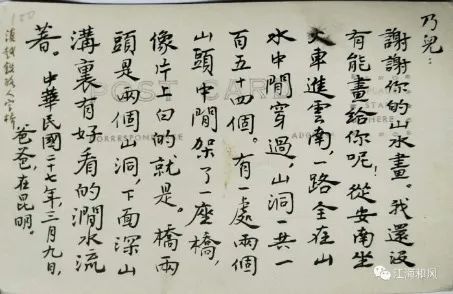 乃兒：
謝謝你的山水畫。我還沒
有能畫給你呢！從安南坐
火車進雲南，一路全在山
水中間穿過。山洞一共一
百五十四個。有一處兩個
山頭中間架了一座橋，
像片上白的就是。橋兩
頭是兩個山洞，下面深山
溝裏有好看的澗水流
著。中華民國二十七年，三月九日，
爸爸，在昆明。
滇越鐵路人字橋
POST CARD
CORRESPONDENCE
ADDRESS
江海和风